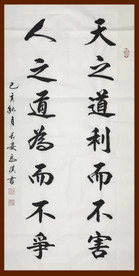 天之道利而不害
人之道為而不爭
己亥秋月长安